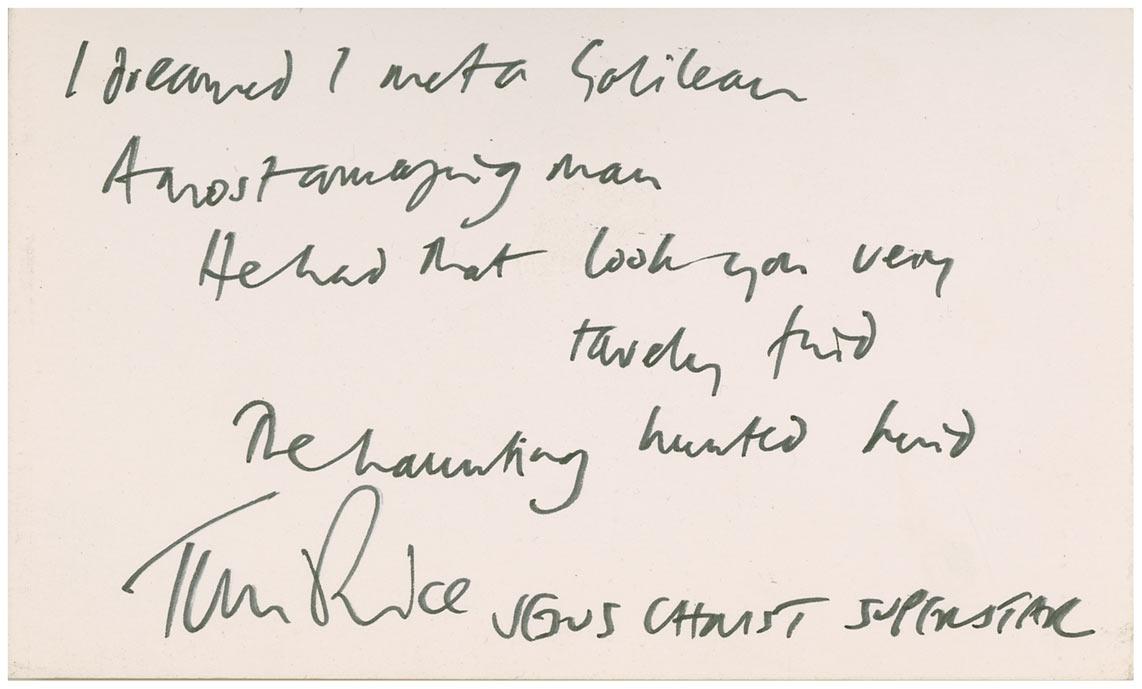 I dreamed I met a Galilean
A most amazing man
He had that look you very
rarely find
The haunting hunted kind
Tim Rice JESUS CHRIST SUPERSTAR